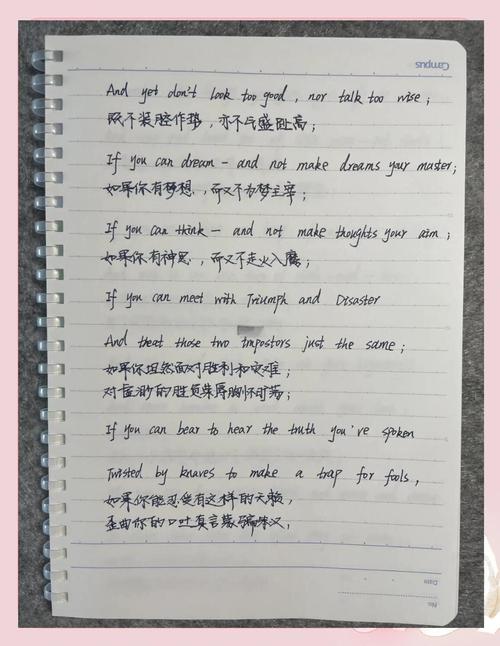 Campus
And yet don't look too good, nor talk too wise;
既不装腔作势,亦不气盛趾高;
If you can dream - and not make dreams your master;
如果你有梦想,而又不为梦主宰;
If you can think - and not make thoughts your aim;
如果你有神思,而又不走火入魔;
If you can meet with Triumph and Disaster
And theat those two impostors just the same;
如果你坦然面对胜利和灾难;
对虚渺的胜负荣辱胸怀旷荡;
If you can bear to hear the truth you've spoken
Twisted by knaves to make a trap for fools,
如果你能忍受有这样的无赖,
歪曲你的口吐真言蒙骗
Date
No.